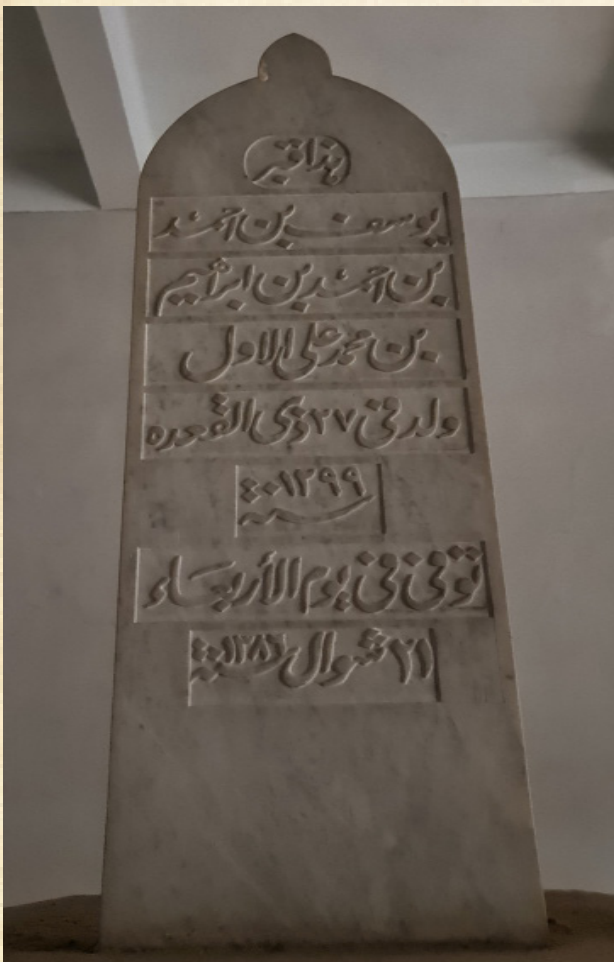 هذا قبر
يوسف بن احمد
بن احمد بن ابراهيم
بن محمد علي الاول
ولد في ٢٧ ذي القعده
سنه ١٢٩٩
توفى في يوم الأربعاء
٢١ شوال سنه